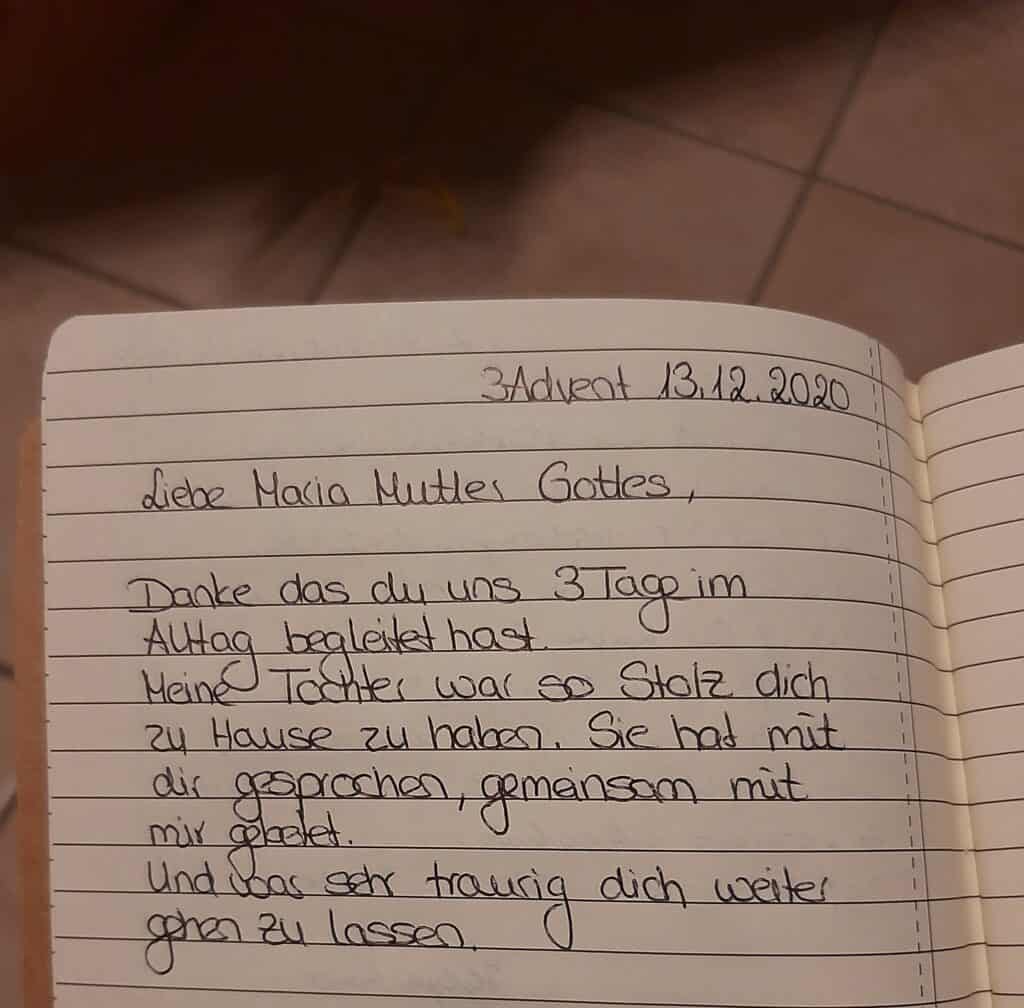 3Advent 13.12.2020
Liebe Maria Mutter Gottes,
Danke das du uns 3 Tage im
Alltag begleitet hast.
Meine Tochter war so Stolz dich
zu Hause zu haben. Sie hat mit
dir gesprochen, gemeinsam mit
mir gebetet.
Und war sehr traurig dich weiter
gehen zu lassen.